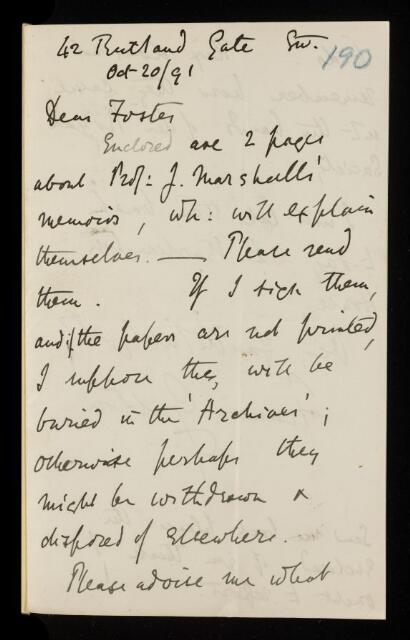 42 Rutland Gate SW.
190
Oct 20/91
Dear Foster
Enclosed are 2 pages
about Prof: J. Marshall's
memoirs, wh: will explain
themselves. — Please read
them. If I sign them,
and if the papers are not printed,
I suppose they will be
buried in the 'Archives';
otherwise perhaps they
might be withdrawn &
disposed of elsewhere.
Please advise me what